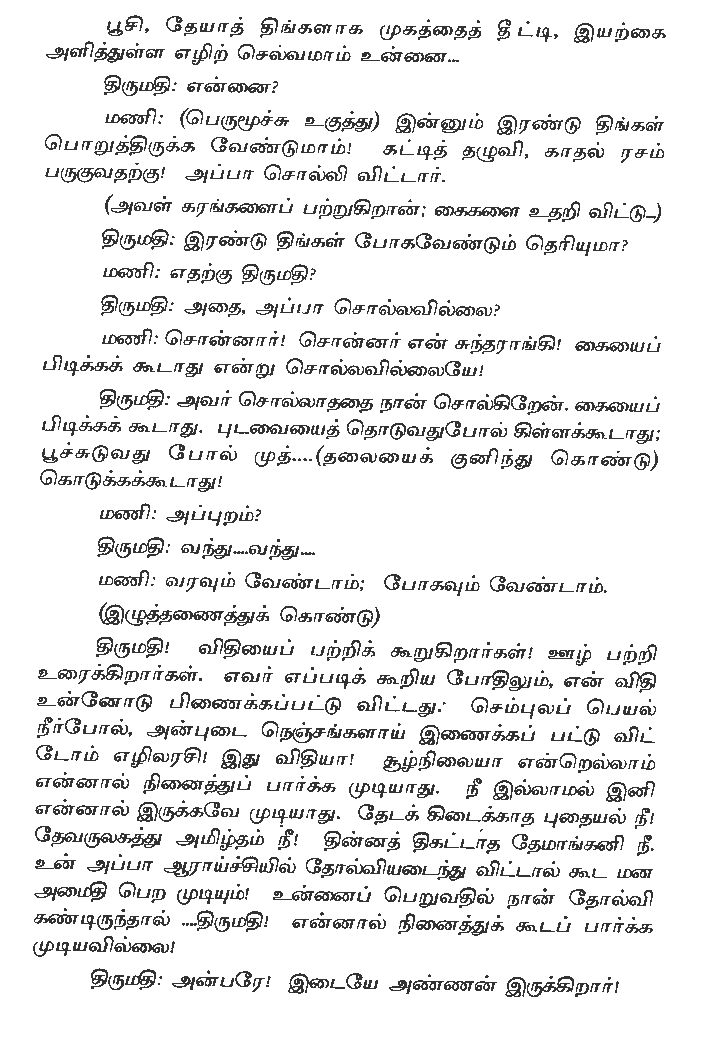 பூசி, தேயாத் திங்களாக முகத்தைத் தீட்டி, இயற்கை
அளித்துள்ள எழிற் செல்வமாம் உன்னை...
திருமதி: என்னை?
மணி: (பெருமூச்சு உகுத்து) இன்னும் இரண்டு திங்கள்
பொறுத்திருக்க வேண்டுமாம்! கட்டித் தழுவி, காதல் ரசம்
பருகுவதற்கு! அப்பா சொல்லி விட்டார்.
(அவள் கரங்களைப் பற்றுகிறான்; கைகளை உதறி விட்டு...)
திருமதி: இரண்டு திங்கள் போகவேண்டும் தெரியுமா?
மணி: எதற்கு திருமதி?
திருமதி: அதை, அப்பா சொல்லவில்லை?
மணி: சொன்னார்! சொன்னர் என் சுந்தராங்கி! கையைப்
பிடிக்கக் கூடாது என்று சொல்லவில்லையே!
திருமதி: அவர் சொல்லாததை நான் சொல்கிறேன். கையைப்
பிடிக்கக் கூடாது. புடவையைத் தொடுவதுபோல் கிள்ளக்கூடாது;
பூச்சுடுவது போல் முத்....(தலையைக் குனிந்து கொண்டு)
கொடுக்கக்கூடாது!
மணி: அப்புறம்?
திருமதி: வந்து....வந்து....
மணி: வரவும் வேண்டாம்; போகவும் வேண்டாம்.
(இழுத்தணைத்துக் கொண்டு)
திருமதி! விதியைப் பற்றிக் கூறுகிறார்கள்! ஊழ் பற்றி
உரைக்கிறார்கள். எவர் எப்படிக் கூறிய போதிலும், என் விதி
உன்னோடு பிணைக்கப்பட்டு விட்டது. செம்புலப் பெயல்
நீர்போல், அன்புடை நெஞ்சங்களாய் இணைக்கப் பட்டு விட்
டோம் எழிலரசி! இது விதியா! சூழ்நிலையா என்றெல்லாம்
என்னால் நினைத்துப் பார்க்க முடியாது. நீ இல்லாமல் இனி
என்னால் இருக்கவே முடியாது. தேடக் கிடைக்காத புதையல் நீ!
தேவருலகத்து அமிழ்தம் நீ! தின்னத் திகட்டாத தேமாங்கனி நீ.
உன் அப்பா ஆராய்ச்சியில் தோல்வியடைந்து விட்டால் கூட மன
அமைதி பெற முடியும்! உன்னைப் பெறுவதில் நான் தோல்வி
கண்டிருந்தால் ....திருமதி! என்னால் நினைத்துக் கூடப் பார்க்க
முடியவில்லை!
திருமதி: அன்பரே! இடையே அண்ணன் இருக்கிறார்!